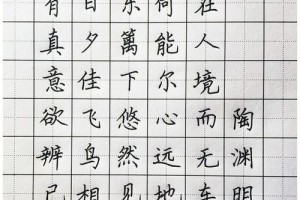 陶渊明
在人境而无车
何能尔心远地
东篱下悠然见
日夕佳飞鸟相
有真意欲辨已